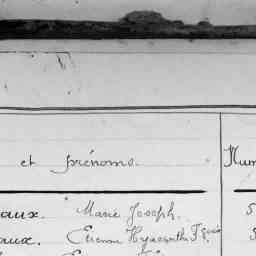 et prénoms. Num
aux. Marie Joseph. 5
aux. Etienne Hyacinthe Fçois